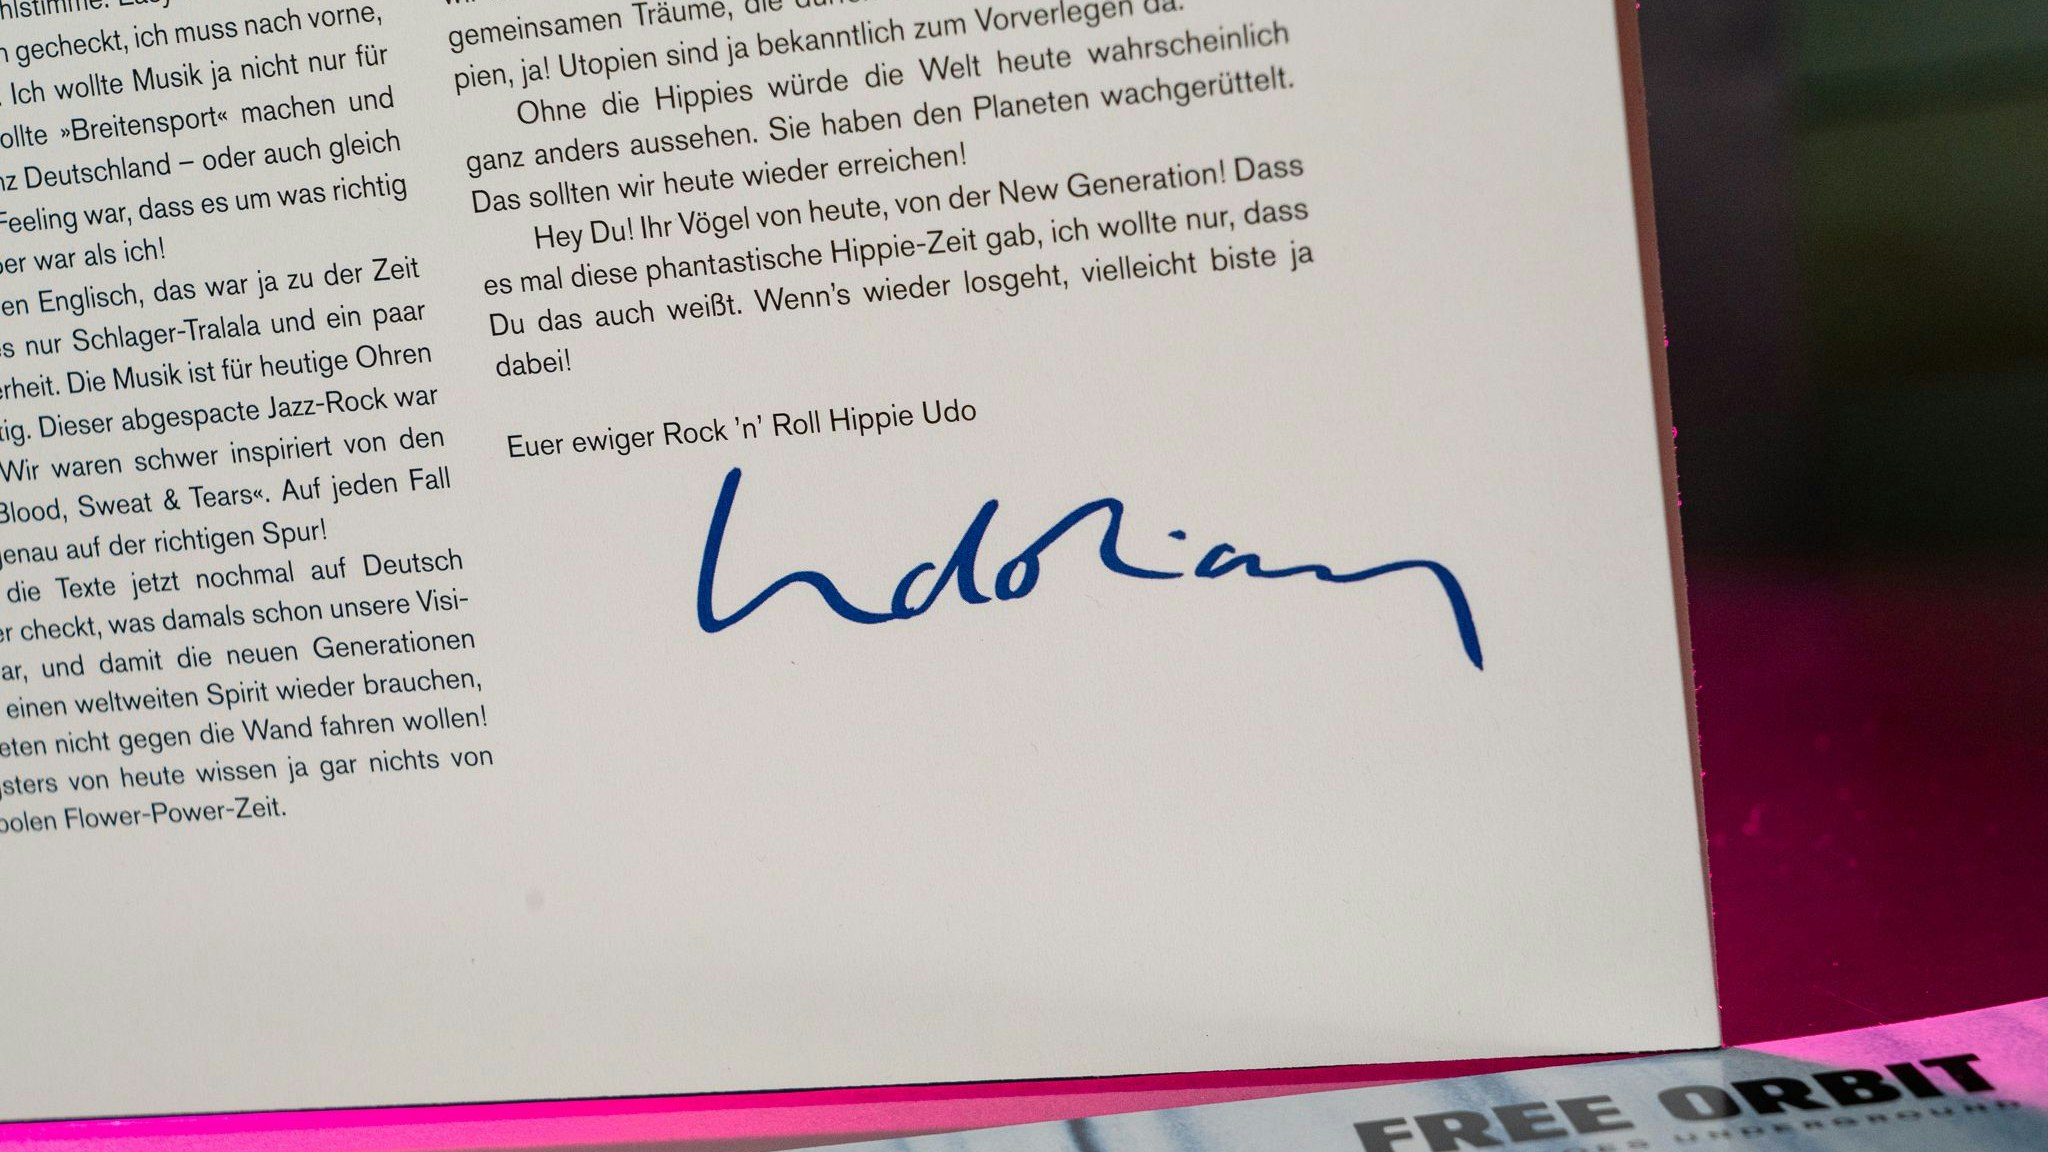 gecheckt, ich muss nach vorne,
Ich wollte Musik ja nicht nur für
»Breitensport« machen und
Deutschland – oder auch gleich
Feeling war, dass es um was richtig
war als ich!
Englisch, das war ja zu der Zeit
nur Schlager-Tralala und ein paar
Die Musik ist für heutige Ohren
Dieser abgespacte Jazz-Rock war
Wir waren schwer inspiriert von den
Blood, Sweat & Tears«. Auf jeden Fall
genau auf der richtigen Spur!
die Texte jetzt nochmal auf Deutsch
checkt, was damals schon unsere Visi-
und damit die neuen Generationen
einen weltweiten Spirit wieder brauchen,
nicht gegen die Wand fahren wollen!
von heute wissen ja gar nichts von
Flower-Power-Zeit.
gemeinsamen Träume, die
pien, ja! Utopien sind ja bekanntlich zum Vorverlegen da.
Ohne die Hippies würde die Welt heute wahrscheinlich
ganz anders aussehen. Sie haben den Planeten wachgerüttelt.
Das sollten wir heute wieder erreichen!
Hey Du! Ihr Vögel von heute, von der New Generation! Dass
es mal diese phantastische Hippie-Zeit gab, ich wollte nur, dass
Du das auch weißt. Wenn's wieder losgeht, vielleicht biste ja
dabei!
Euer ewiger Rock 'n' Roll Hippie Udo
FREE ORBIT
UNDERGROUND